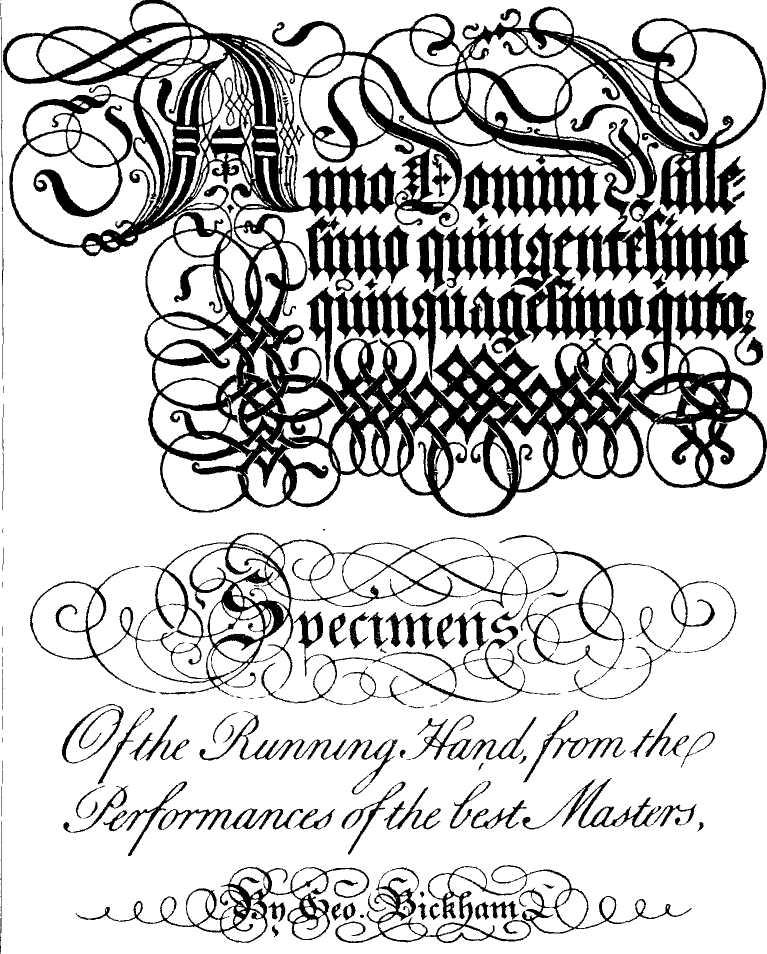 Anno Domini Mille-
simo quingentesimo
quinquagesimo quto.
Specimens
Of the Running Hand, from the
Performances of the best Masters,
By Geo. Bickham